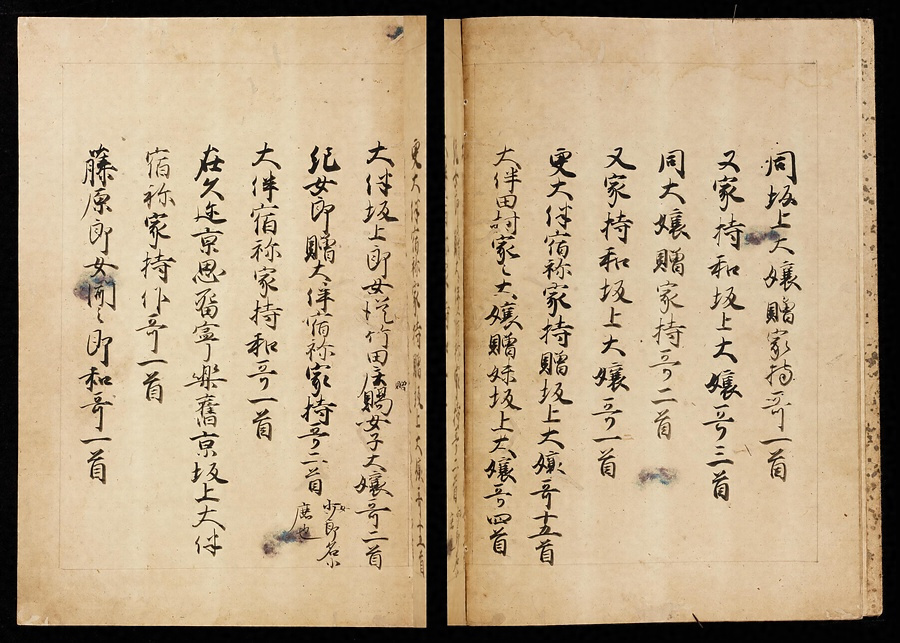 同坂上大嬢贈家持哥一首
又家持和坂上大嬢哥三首
同大嬢贈家持哥二首
又家持和坂上大嬢哥一首
更大伴宿祢家持贈坂上大嬢哥十五首
大伴田村家〻大嬢贈妹坂上大嬢哥四首
大伴坂上郎女従竹田庄賜女子大嬢哥二首
紀女郎贈大伴宿祢家持哥二首
女郎名小
鹿也
大伴宿祢家持和哥一首
在久迩京思留寧樂舊京坂上大伴
宿祢家持作哥一首
藤原郎女聞之即和哥一首